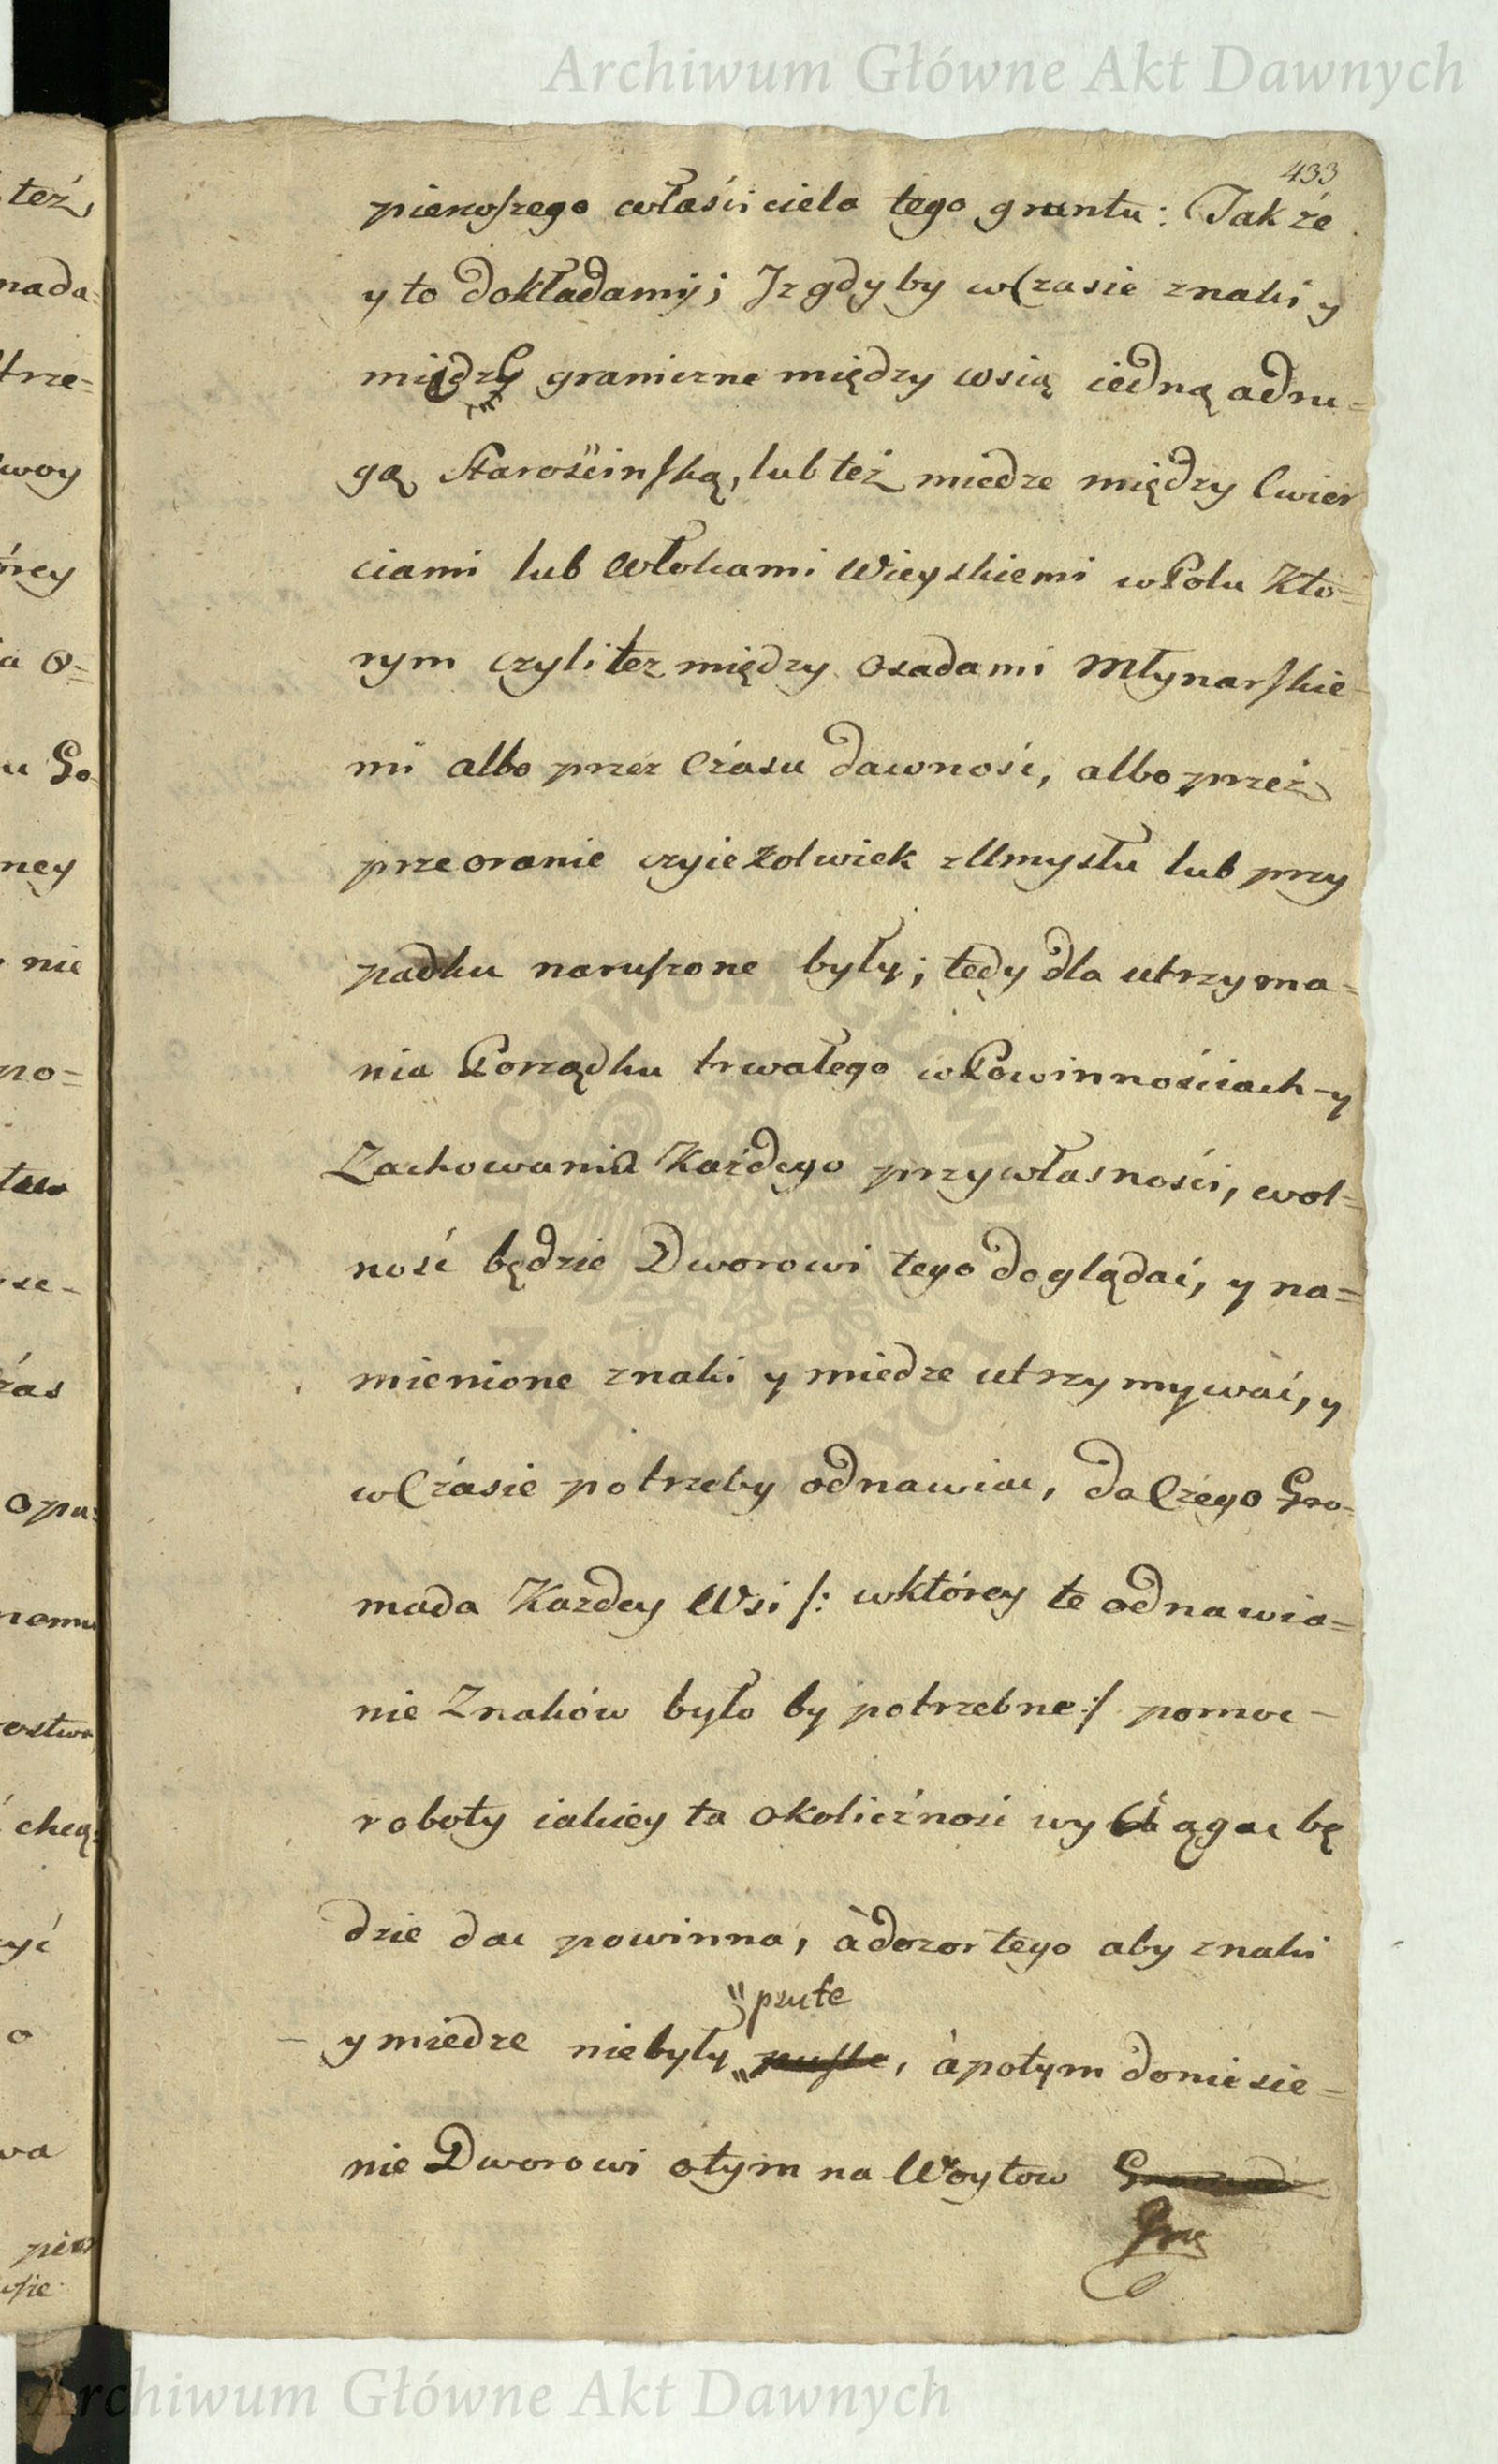 Archiwum Główne Akt Dawnych
433
pierwszego właściciela tego gruntu: Także
y to dokładamy; Iz gdyby w Czasie znaki y
między graniczne między wsią iedną a dru=
gą Starościnską, lub też miedze między Cwier
ciami lub Włokami Wieyskiemi w Polu Kto=
rym czyli tez między osadami Młynarskie-
mi albo przez Czasu dawność, albo przez
przeoranie czyiezkolwiek z Umysłu lub przy
padku naruszone były; tedy dla utrzyma=
nia Porządku trwałego w Powinnościach y
Zachowania Każdego przy własności, wol=
ność będzie Dworowi tego doglądać, y na=
mienione znaki y miedze utrzymywać, y
w Czasie potrzeby odnawiac, do Czego Gro-
mada Kazdey Wsi /: w którey te odnawia=
nie Znaków było by potrzebne :/ pomoc -
roboty iakiey ta okoliczność wyciągac bę
dzie dac powinna, à dozor tego aby znaki
psute
- y miedze nie były puste, à potym doniesie=
nie Dworowi o tym na Woytow Gromad
też,
nada=
trze=
woy
órey
ia O=
u Go
ney
nie
no=
se-
zas
opu=
nemu
chcą=
yć
o
wa
pier
Archiwum Główne Akt Dawnych